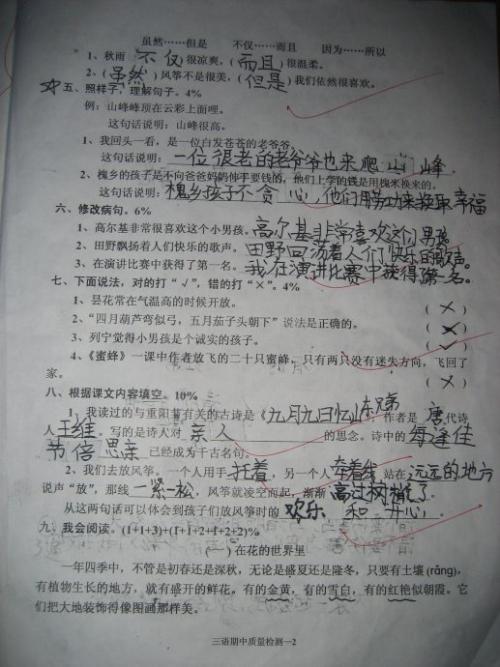 虽然……但是 不仅……而且 因为……所以
1、秋雨（不仅）很凉爽，（而且）很温柔。
2、（虽然）风筝不是很美，（但是）我们依然很喜欢。
五、照样子，理解句子。4%
例：山峰峰顶在云彩上面哩。
这句话说明：山峰很高。
1、我回头一看，是一位白发苍苍的老爷爷。
这句话说明：一位很老的老爷爷也来爬山峰.
2、槐乡的孩子是不向爸爸妈妈伸手要钱的，他们上学的钱是用槐米换来的。
这句话说明：槐乡孩子不贪心，他们用劳动来换取幸福
六、修改病句。6%
1、高尔基非常很喜欢这个小男孩。高尔基非常喜欢这个男孩
2、田野飘扬着人们快乐的歌声。田野回荡着人们快乐的歌声。
3、在演讲比赛中获得了第一名。我在演讲比赛中获得第一名。
七、下面说法，对的打“√”，错的打“×”。4%
1、昙花常在气温高的时候开放。（×）
2、“四月葫芦弯似弓，五月茄子头朝下”说法是正确的。（×）
3、列宁觉得小男孩是个诚实的孩子。（√）
4、《蜜蜂》一课中作者放飞的二十只蜜蜂，只有两只没有迷失方向，飞回了
家。（×）
八、根据课文内容填空。10%
1、我读过的与重阳节有关的古诗是《九月九日忆山东兄弟》，作者是 唐 代诗
人 王维。写的是诗人对 亲人 的思念。诗中的 每逢佳
节倍思亲 已经成为千古名句。
2、我们去放风筝。一个人用手 托着，另一个人 牵着线 站在 远远的地方
说声“放”，那线 一紧一松，风筝就凌空而起，渐渐 高过树梢了.
从这两句话可以体会到孩子们放风筝时的 欢乐 和 开心
九、我会阅读。(1+1+3)+(1+1+2+1+2+2)%
（一）在花的世界里
一年四季中，不管是初春还是深秋，无论是盛夏还是隆冬，只要有土壤 (rǎng)，
有植物生长的地方，就有盛开的鲜花。有的金黄，有的雪白，有的红艳似朝霞。它
们把大地装饰得像图画那样美。
三语期中质量检测—2